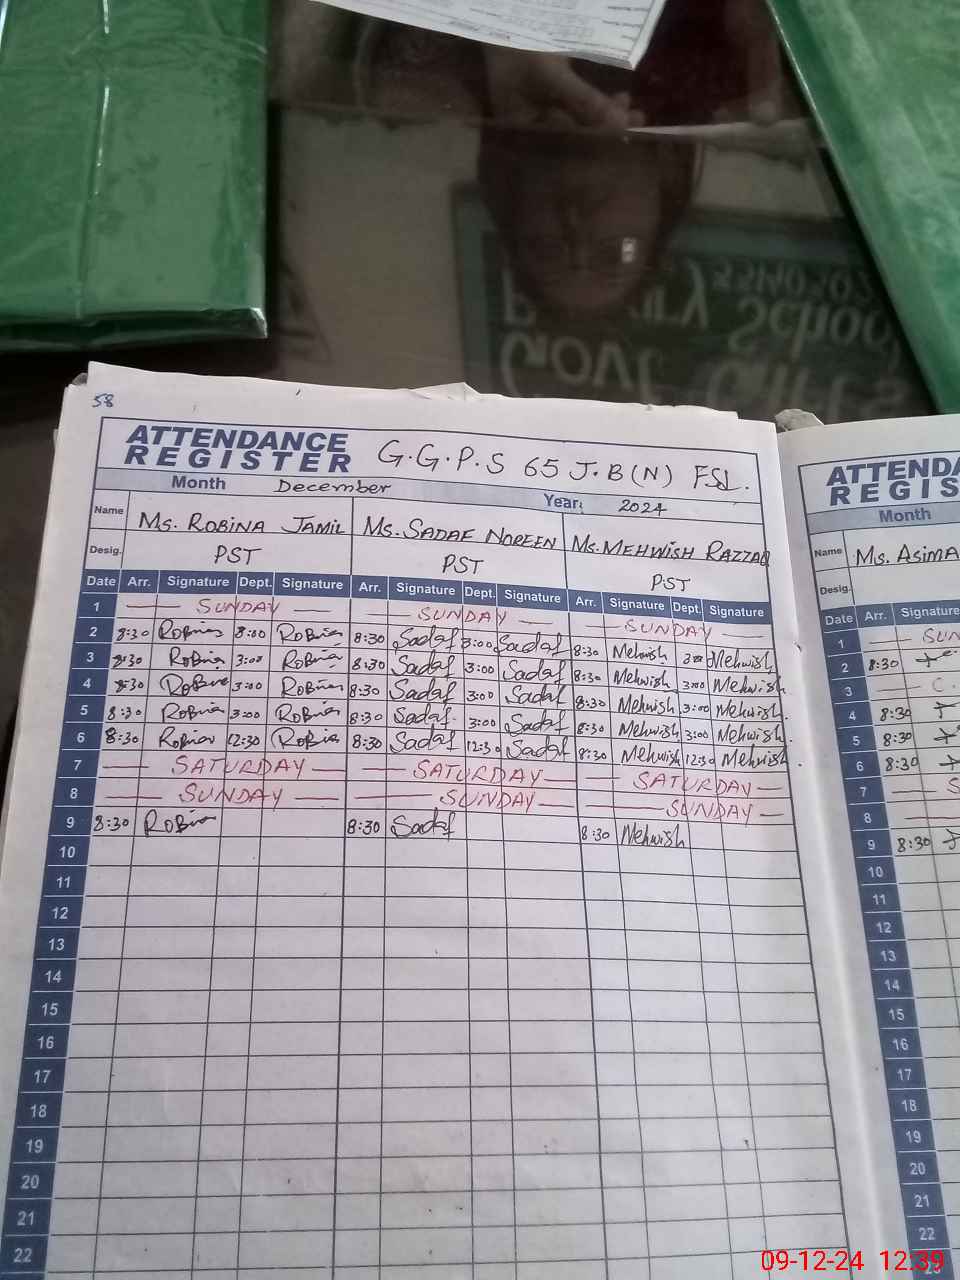 Primary School
Govt Girls
58
ATTENDANCE REGISTER G.G.P.S 65 J.B(N) FSD.
Month December Year: 2024
Name Ms. ROBINA JAMIL Ms. SADAF NOREEN Ms. MEHWISH RAZZAQ
Desig. PST PST PST
Date Arr. Signature Dept. Signature Arr. Signature Dept. Signature Arr. Signature Dept. Signature
1 SUNDAY SUNDAY SUNDAY
2 8:30 Robina 8:00 Robina 8:30 Sadaf 3:00 Sadaf 8:30 Mehwish 3:00 Mehwish
3 8:30 Robina 3:00 Robina 8:30 Sadaf 3:00 Sadaf 8:30 Mehwish 3:00 Mehwish
4 8:30 Robina 3:00 Robina 8:30 Sadaf 3:00 Sadaf 8:30 Mehwish 3:00 Mehwish
5 8:30 Robina 3:00 Robina 8:30 Sadaf 3:00 Sadaf 8:30 Mehwish 3:00 Mehwish
6 8:30 Robina 12:30 Robina 8:30 Sadaf 12:30 Sadaf 8:30 Mehwish 12:30 Mehwish
7 SATURDAY SATURDAY SATURDAY
8 SUNDAY SUNDAY SUNDAY
9 8:30 Robina 8:30 Sadaf 8:30 Mehwish
10
11
12
13
14
15
16
17
18
19
20
21
22
ATTENDA
REGIS
Month
Name Ms. ASIMA
Desig.
Date Arr. Signature
1 SUN
2 8:30
3 C.
4 8:30
5 8:30
6 8:30
7 S
8
9 8:30
10
11
12
13
14
15
16
17
18
19
20
21
22
23
09-12-24 12:39